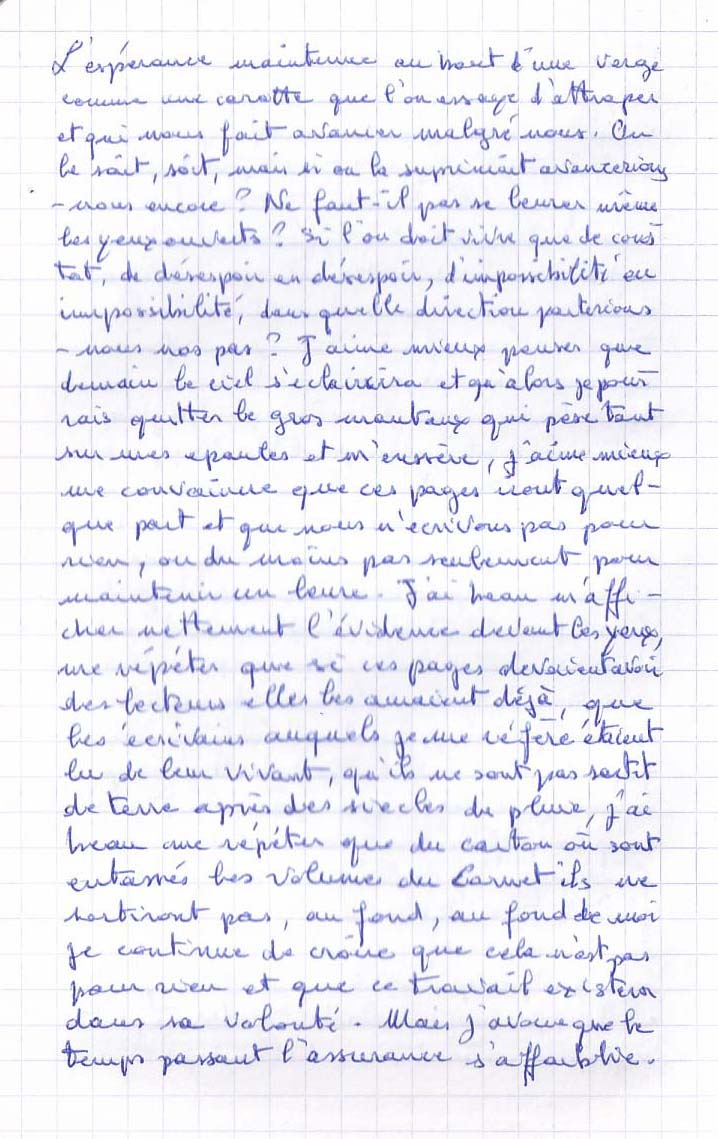 L'espérance maintenue au bout d'une verge
comme une carotte que l'on essaye d'attraper
et qui nous fait avancer malgré nous. On
le sait, soit, mais si on la suprimait avancerions
-nous encore ? Ne faut-il pas se leurrer même
les yeux ouverts ? Si l'on doit vivre que de cons
tat, de désespoir en désespoir, d'impossibilité en
impossibilité, dans quelle direction porterions
-nous nos pas ? J'aime mieux penser que
demain le ciel s'eclaircira et qu'alors je pour
rais quitter le gros manteaux qui pèse tant
sur mes epaules et m'enserre, j'aime mieux
me convaincre que ces pages iront quel-
que part et que nous n'ecrivons pas pour
rien, ou du moins pas seulement pour
maintenir un leurre. J'ai beau m'affi-
cher nettement l'évidence devant les yeux,
me répéter que si ces pages devaient avoir
des lecteurs elles les auraient déjà, que
les écrivains auquels je me réfère étaient
lu de leur vivant, qu'ils ne sont pas sortit
de terre après des siecles de pluie, j'ai
beau me répéter que du carton où sont
entassés les volumes du Carnet ils ne
sortiront pas, au fond, au fond de moi
je continue de croire que cela n'est pas
pour rien et que ce travail existera
dans sa volonté. Mais j'avoue que le
temps passant l'assurance s'affaiblie.